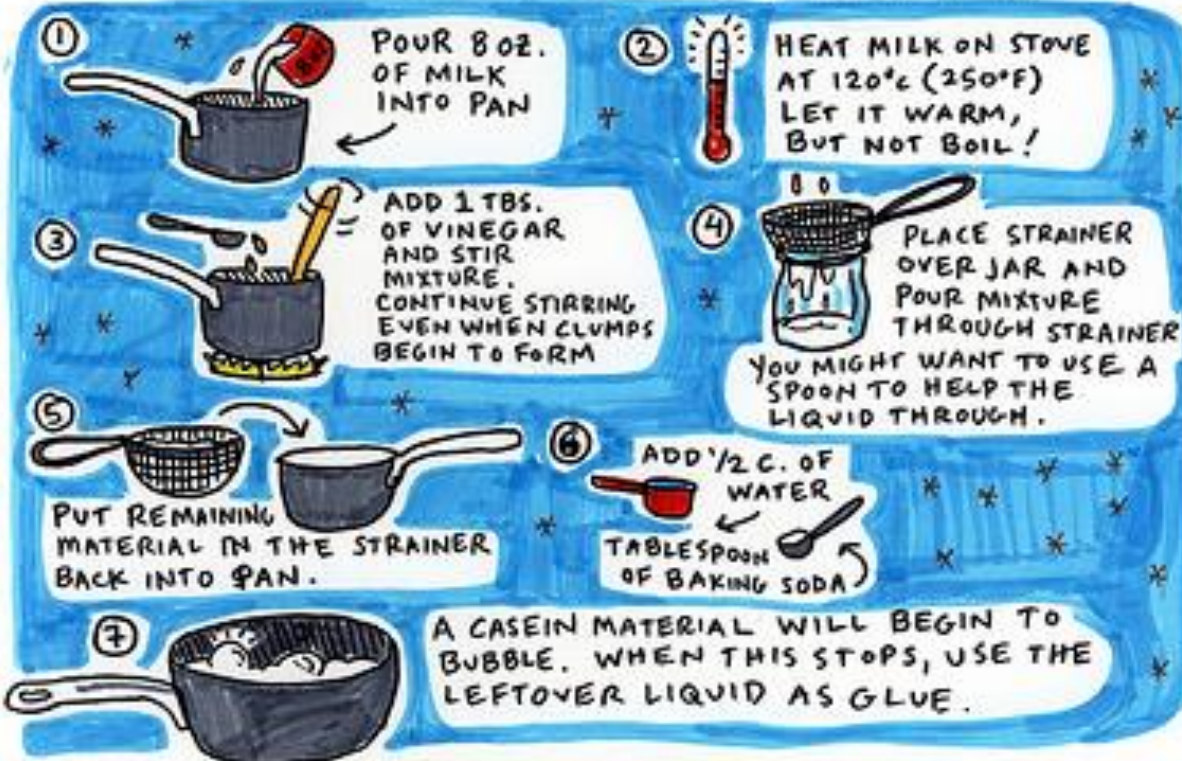 1
POUR 8 OZ.
OF MILK
INTO PAN
2
HEAT MILK ON STOVE
AT 120°C (250°F)
LET IT WARM,
BUT NOT BOIL!
3
ADD 1 TBS.
OF VINEGAR
AND STIR
MIXTURE.
CONTINUE STIRRING
EVEN WHEN CLUMPS
BEGIN TO FORM
4
PLACE STRAINER
OVER JAR AND
POUR MIXTURE
THROUGH STRAINER
YOU MIGHT WANT TO USE A
SPOON TO HELP THE
LIQUID THROUGH.
5
PUT REMAINING
MATERIAL IN THE STRAINER
BACK INTO PAN.
6
ADD 1/2 C. OF
WATER
TABLESPOON
OF BAKING SODA
7
A CASEIN MATERIAL WILL BEGIN TO
BUBBLE. WHEN THIS STOPS, USE THE
LEFTOVER LIQUID AS GLUE.